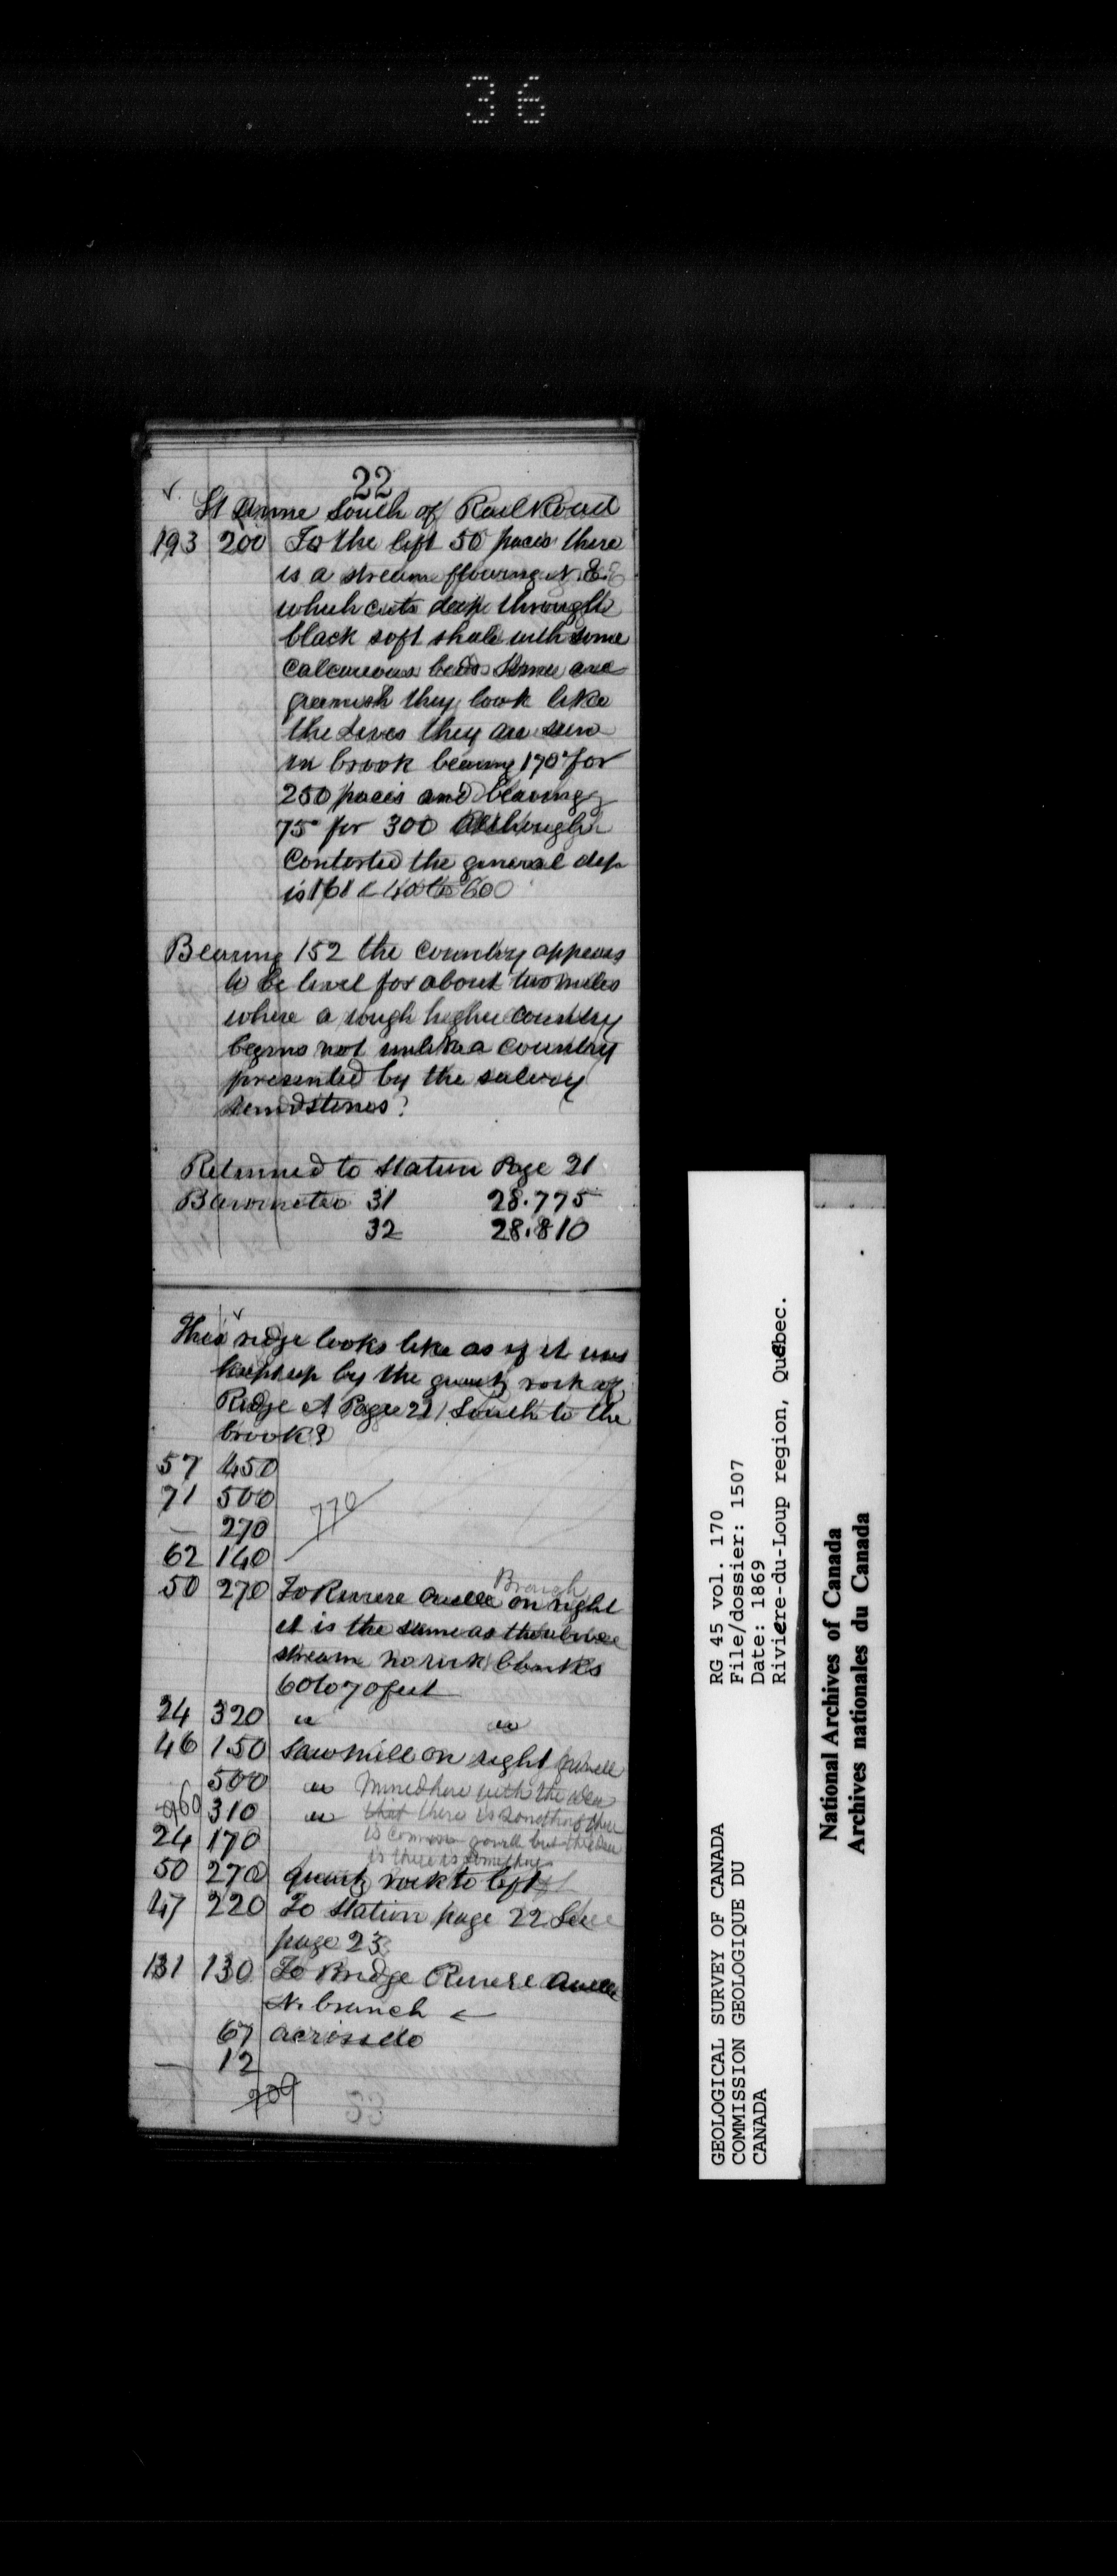 36
22
St Anne South of Rail Road
193 200 To the left 50 paces there
is a stream flowing N.E.
which cuts deep through
black soft shale with some
calcareous beds Some are
greenish they look like
the Levis they are seen
in brook bearing 170° for
250 paces and bearing
75° for 300 Although
Contorted the general dip
is 161 < 40 to 60
Bearing 152 the country appears
to be level for about two miles
where a rough higher country
begins not unlike a country
presented by the
sandstones?
Returned to Station Page 21
Barometer 31 28.775
32 28.810
This ridge looks like as if it was
kept up by the quartz rock of
Ridge A Page 21 South to the
brook?
57 450
71 500
— 270
770
62 140
50 270 To Rivere Ouelle Branch on right
it is the same as the above
stream no rock banks
60 to 70 feet
24 320 " "
46 150 Sawmill on right
500 " Mined here with the idea
310 " that there is something there
24 170 is common but the idea
is there is something
50 270 quartz rock to left
47 220 To Station page 22 See
page 23
131 130 To Bridge Rivere Ouelle
N. branch ←
67 across do
— 12
209
GEOLOGICAL SURVEY OF CANADA
COMMISSION GEOLOGIQUE DU
CANADA
RG 45 vol. 170
File/dossier: 1507
Date: 1869
Rivière-du-Loup region, Québec.
National Archives of Canada
Archives nationales du Canada